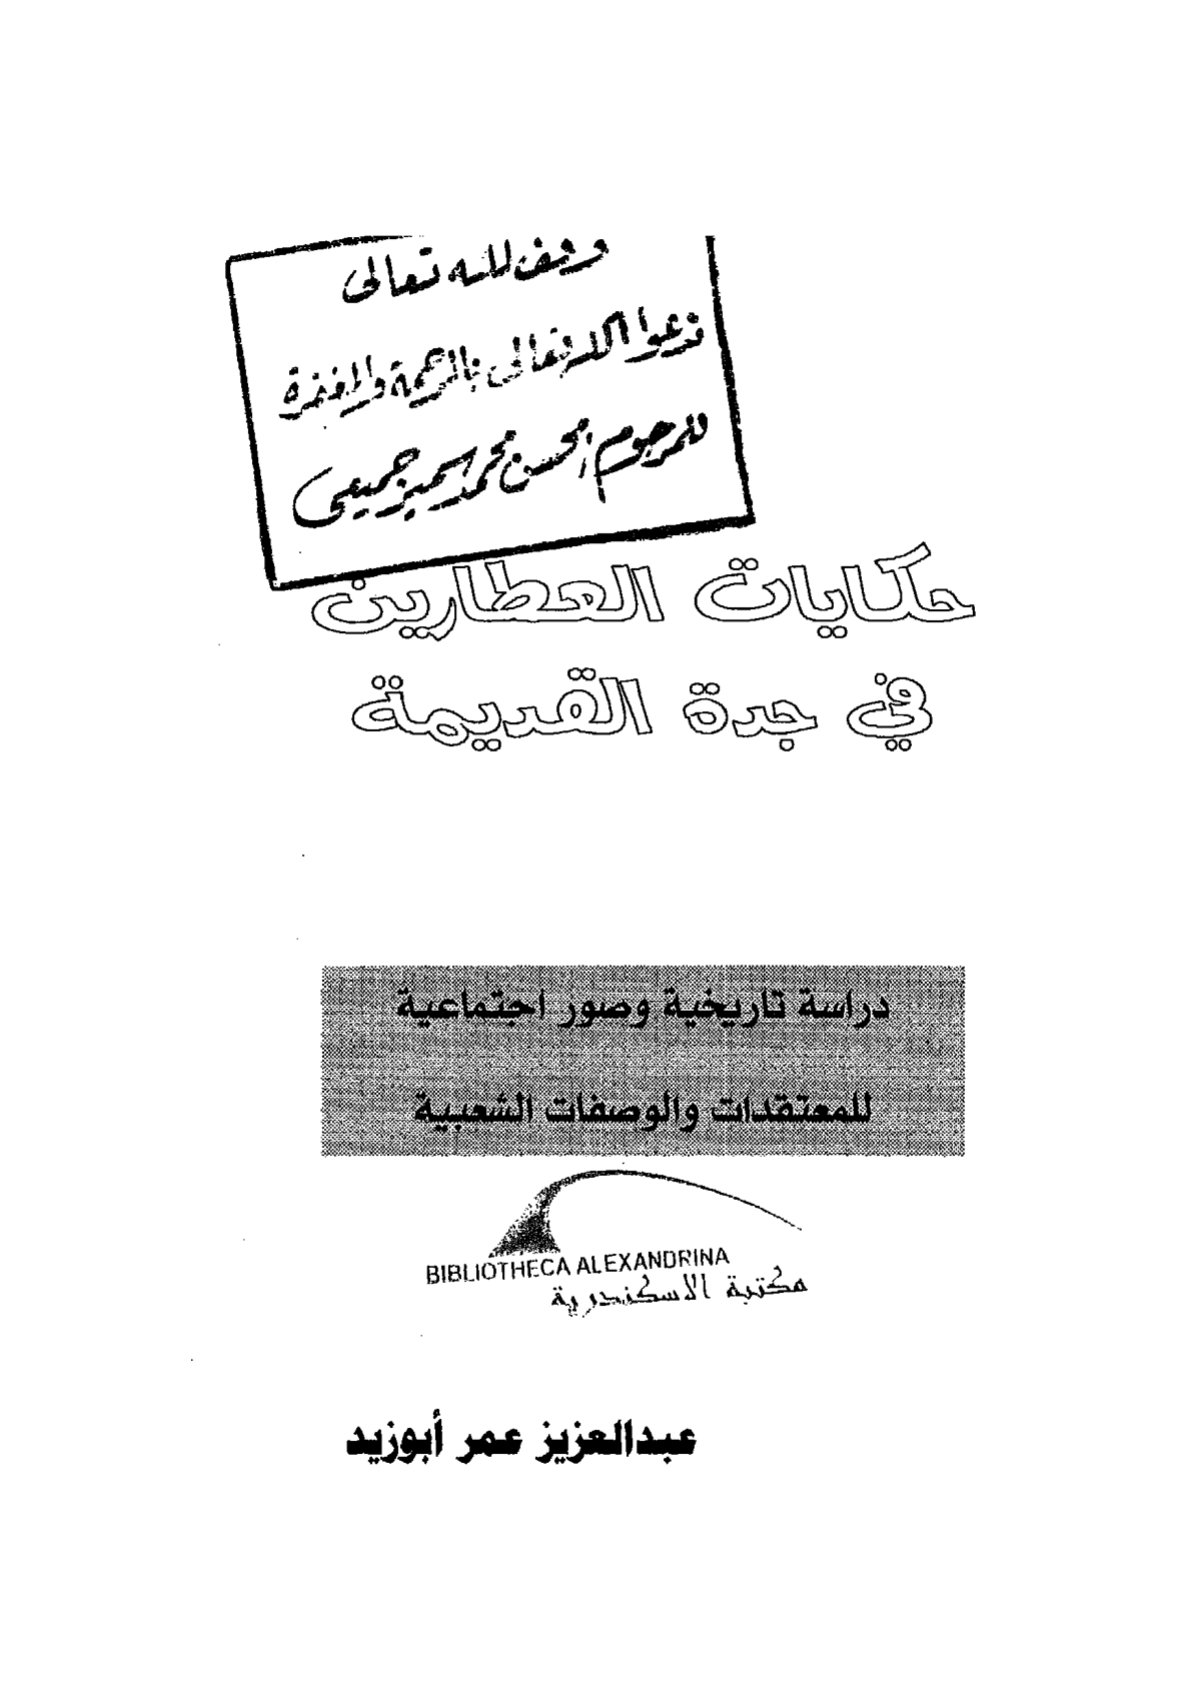 وقف لله تعالى
ندعوا الله تعالى بالرحمة والمغفرة
للمرحوم محسن محمد سمير جميعى
حكايات العطارين
في جدة القديمة
دراسة تاريخية وصور اجتماعية
للمعتقدات والوصفات الشعبية
BIBLIOTHECA ALEXANDRINA
مكتبة الاسكندرية
عبدالعزيز عمر أبوزيد